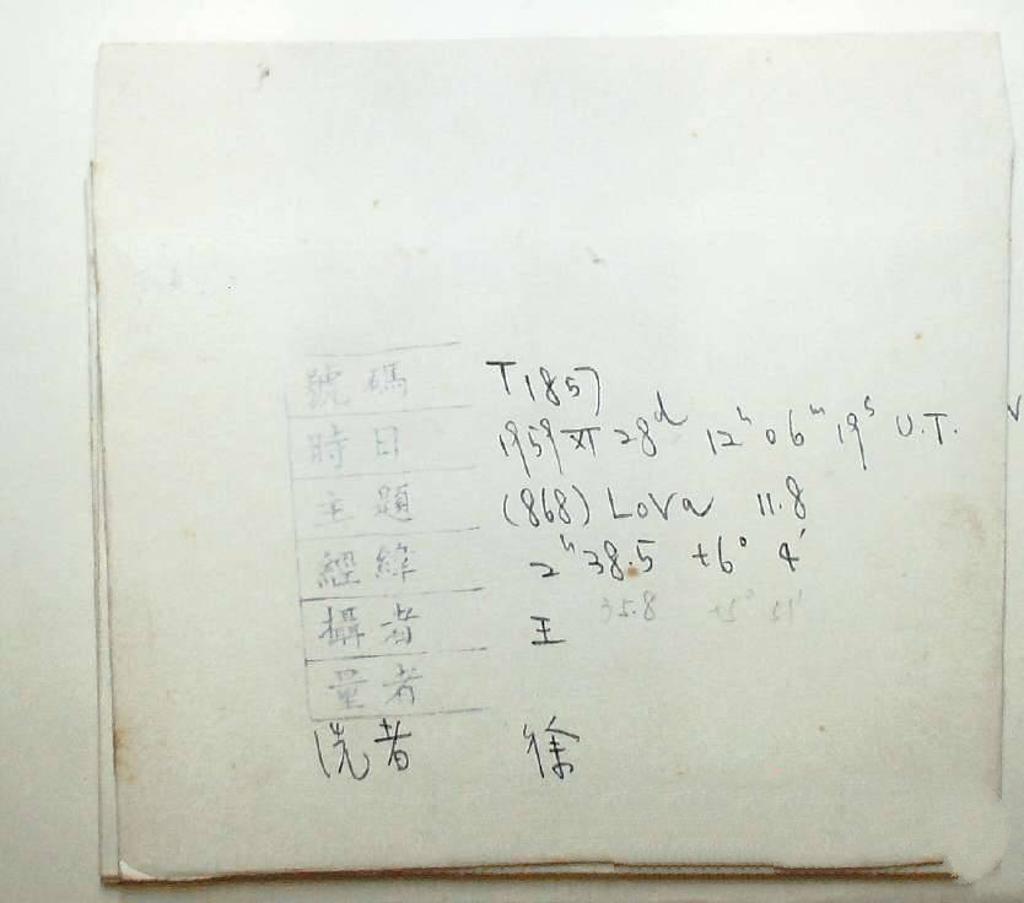 號碼 T1857
時日 1959 XI 28ᵈ 12ʰ 06ᵐ 19ˢ U.T.
主題 (868) Lova 11.8
經緯 2ʰ 38.5 +6° 4'
35.8 +5° 51'
攝者 王
量者
洗者 徐